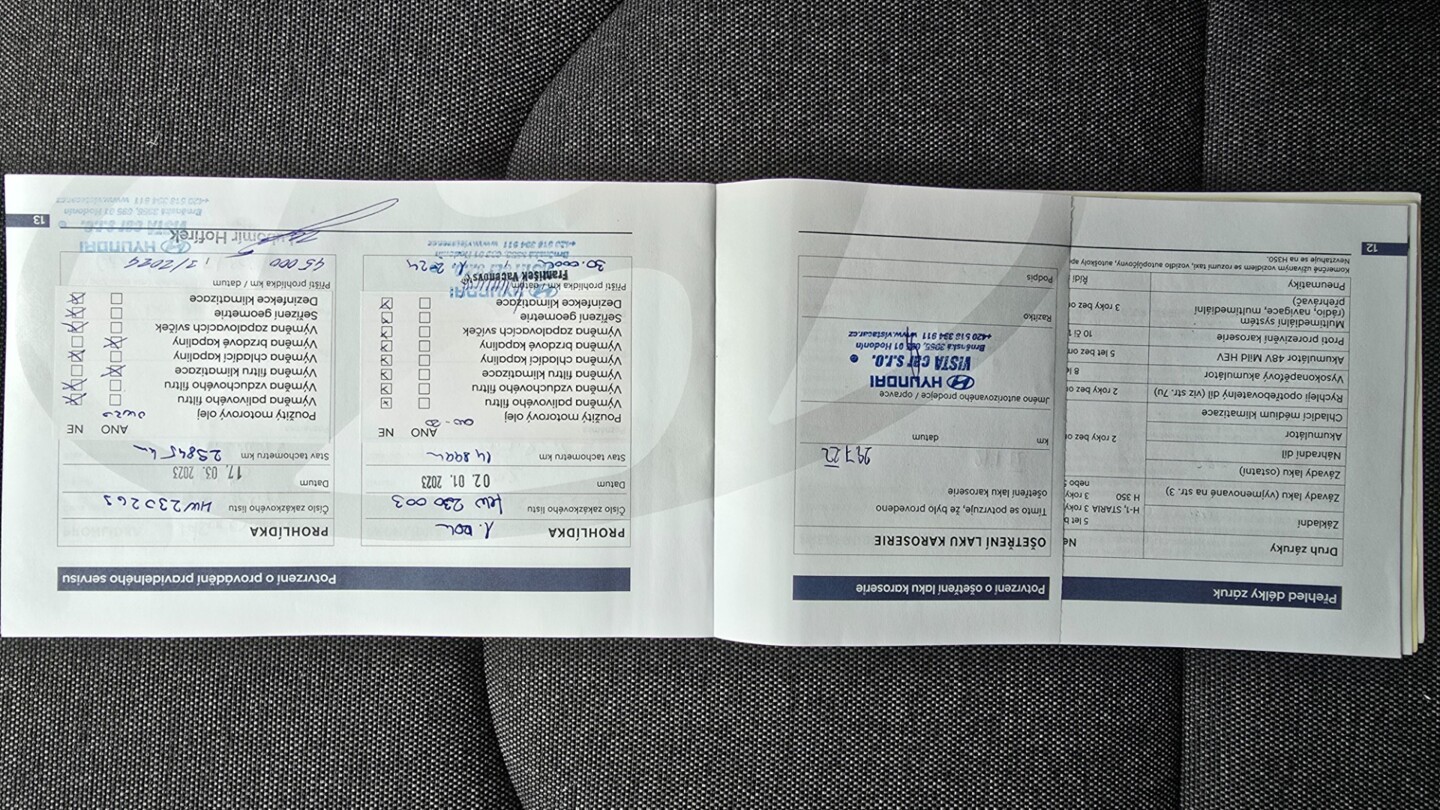 Přehled délky záruk
Druh záruky
Základní
5 let b
H-1, STARIA 3 roky
H 350 3 roky
nebo
Závady laku (vyjmenované na str. 3)
Závady laku (ostatní)
Náhradní díl
Akumulátor
2 roky bez o
Chladicí médium klimatizace
Rychleji opotřebovatelný díl (viz str. 7u)
2 roky bez o
Vysokonapěťový akumulátor
Akumulátor 48V Mild HEV
5 let bez o
Proti prorezivění karoserie
Multimediální systém
(rádio, navigace, multimediální
přehrávač)
3 roky bez o
Pneumatiky
Řídí
Komerčně užívaným vozidlem se rozumí taxi, vozidlo autopůjčovny, autoškoly
Nevztahuje se na H350.
12
Potvrzení o ošetření laku karoserie
OŠETŘENÍ LAKU KAROSERIE
Tímto se potvrzuje, že bylo provedeno
ošetření laku karoserie
km datum
Jméno autorizovaného prodejce / opravce
HYUNDAI
VISTA car s.r.o.
Brněnská 3955, 695 01 Hodonín
+420 518 394 911 www.vistacar.cz
Razítko
Podpis
Potvrzení o provádění pravidelného servisu
PROHLÍDKA
Číslo zakázkového listu 230 003
Datum 02. 01. 2023
Stav tachometru km
ANO NE
Použitý motorový olej
Výměna palivového filtru
Výměna vzduchového filtru
Výměna filtru klimatizace
Výměna chladicí kapaliny
Výměna brzdové kapaliny
Výměna zapalovacích svíček
Seřízení geometrie
Dezinfekce klimatizace
Příští prohlídka km / datum
HYUNDAI
František Vacenovský
PROHLÍDKA
Číslo zakázkového listu HW230263
Datum 17. 03. 2023
Stav tachometru km 25845 km
ANO NE
Použitý motorový olej 0W20
Výměna palivového filtru
Výměna vzduchového filtru
Výměna filtru klimatizace
Výměna chladicí kapaliny
Výměna brzdové kapaliny
Výměna zapalovacích svíček
Seřízení geometrie
Dezinfekce klimatizace
Příští prohlídka km / datum
45000 , 3/2024
HYUNDAI
Hofírek
VISTA car s.r.o.
Brněnská 3955, 695 01 Hodonín
+420 518 394 911 www.vistacar.cz
13